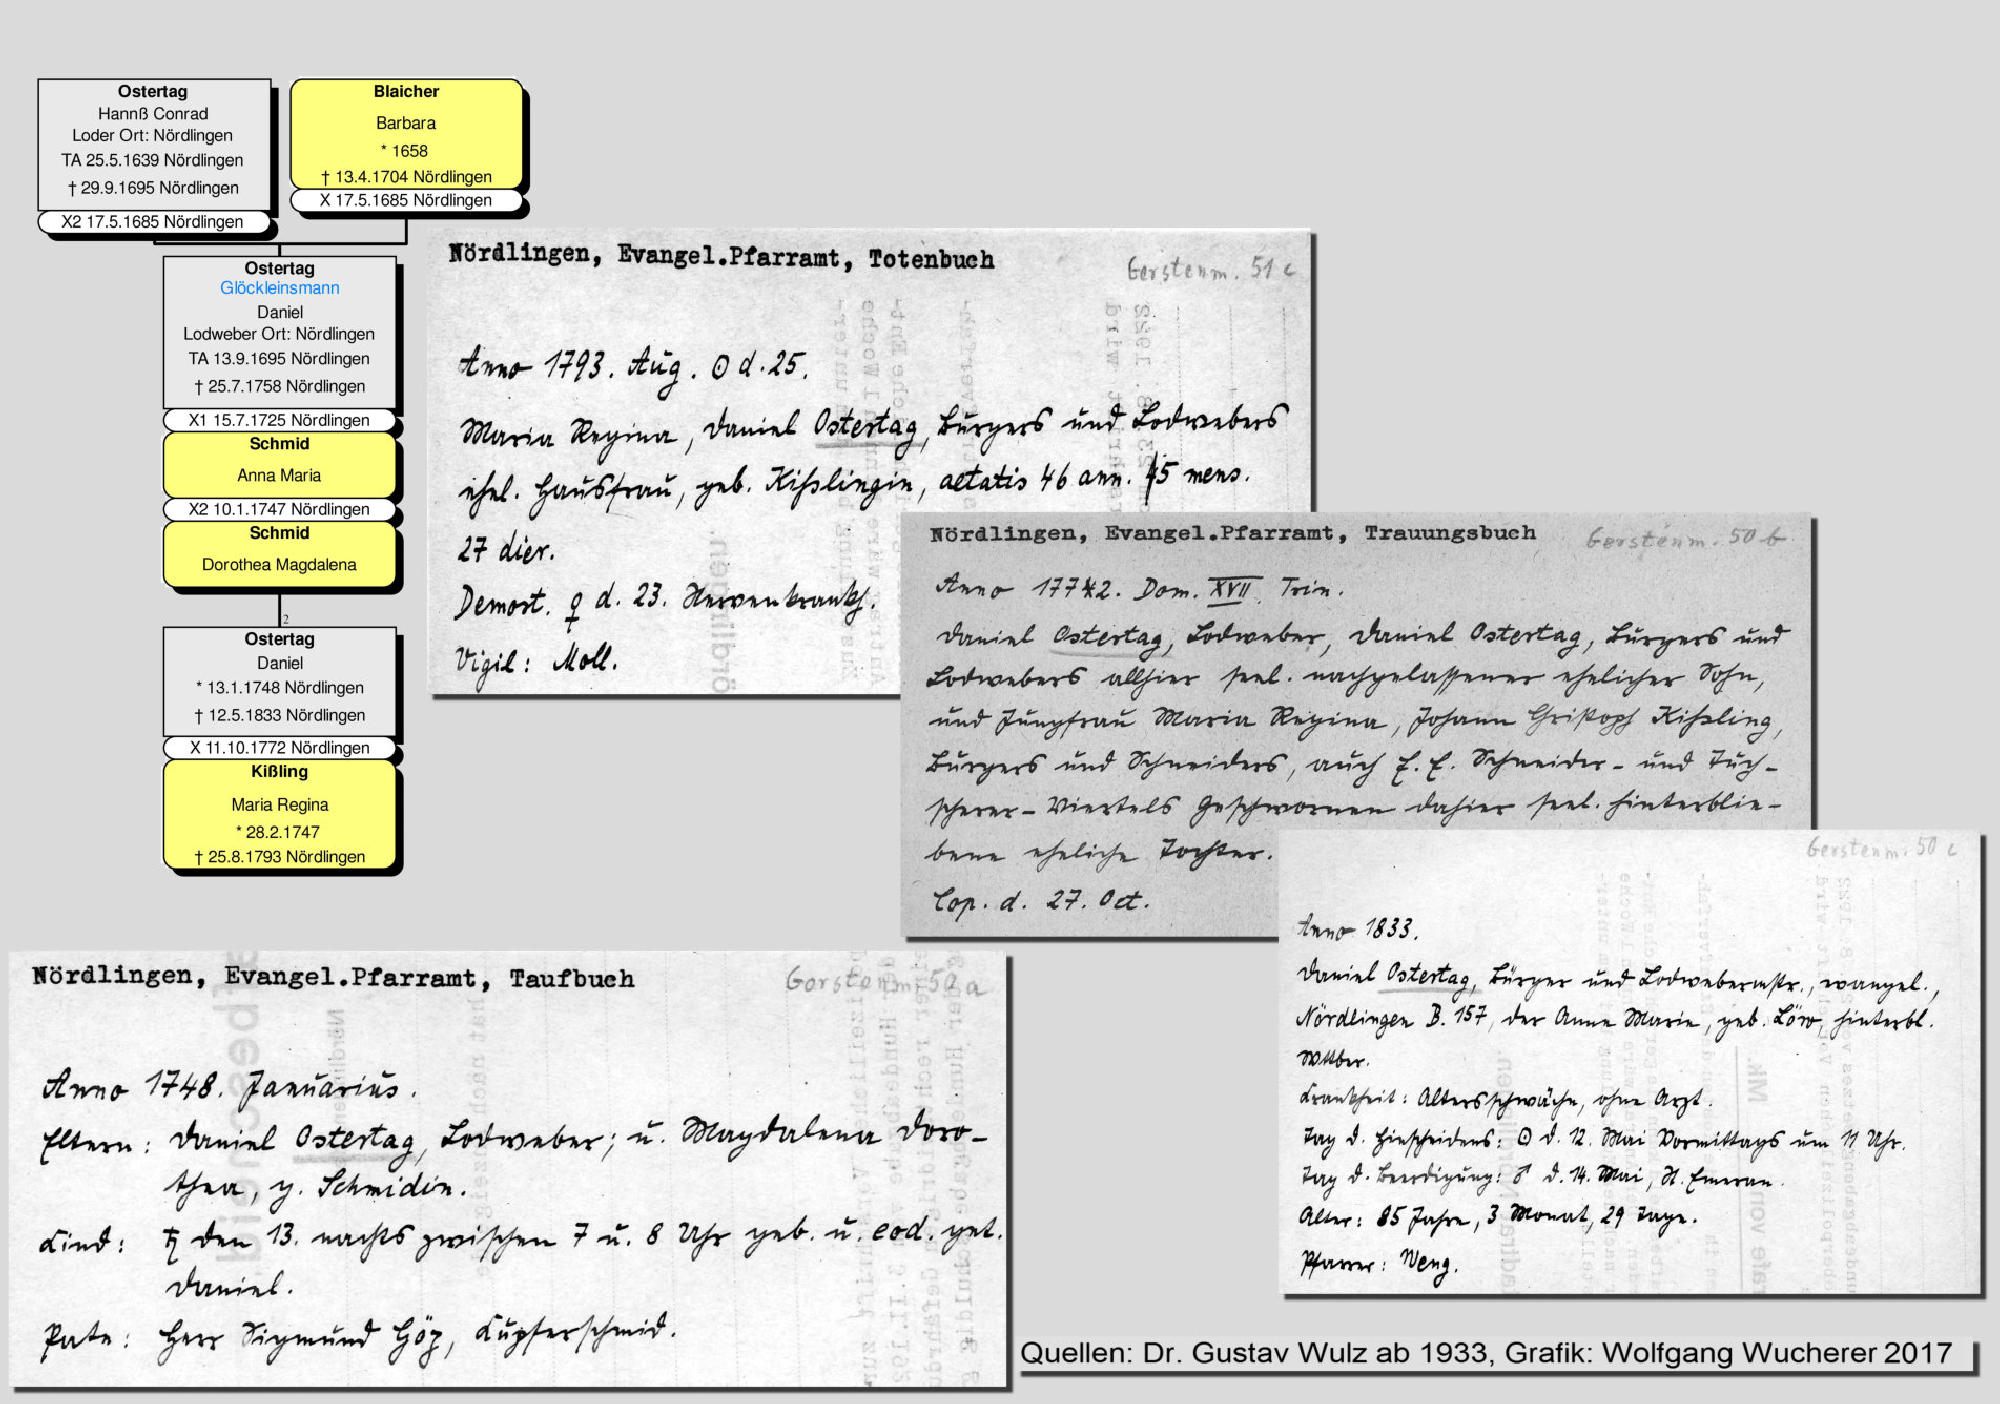 Ostertag
Hannß Conrad
Loder Ort: Nördlingen
TA 25.5.1639 Nördlingen
† 29.9.1695 Nördlingen
X2 17.5.1685 Nördlingen
Blaicher
Barbara
* 1658
† 13.4.1704 Nördlingen
X 17.5.1685 Nördlingen
Ostertag
Glöckleinsmann
Daniel
Lodweber Ort: Nördlingen
TA 13.9.1695 Nördlingen
† 25.7.1758 Nördlingen
X1 15.7.1725 Nördlingen
Schmid
Anna Maria
X2 10.1.1747 Nördlingen
Schmid
Dorothea Magdalena
2
Ostertag
Daniel
* 13.1.1748 Nördlingen
† 12.5.1833 Nördlingen
X 11.10.1772 Nördlingen
Kißling
Maria Regina
* 28.2.1747
† 25.8.1793 Nördlingen
Nördlingen, Evangel.Pfarramt, Totenbuch
Gerstenm. 51 c
Anno 1793. Aug. ⊙ d. 25.
Maria Regina, Daniel Ostertag, Burgers und Lodwebers
ehel. Hausfrau, geb. Kißlingin, aetatis 46 ann. 5 mens.
27 dier.
Demort. ♀ d. 23. Nervenkrankh.
Vigil: Moll.
Nördlingen, Evangel.Pfarramt, Trauungsbuch
Gerstenm. 50 b
Anno 1772. Dom. XVII Trin.
Daniel Ostertag, Lodweber, Daniel Ostertag, Burgers und
Lodwebers allhier seel. nachgelassener ehelicher Sohn,
und Jungfrau Maria Regina, Johann Christoph Kißling,
Burgers und Schneiders, auch E. E. Schneider- und Tuch-
scherer-Viertels Geschwornen dahier seel. hinterblie-
bene eheliche Tochter.
Cop. d. 27. Oct.
Gerstenm. 50 c
Anno 1833.
Daniel Ostertag, Bürger und Lodwebermstr., evangel.,
Nördlingen B. 157, der Anna Maria, geb. Löw, hinterbl.
Wittber.
Krankheit: Altersschwäche, ohne Arzt.
Tag d. Hinscheidens: ⊙ d. 12. Mai Vormittags um 11 Uhr.
Tag d. Beerdigung: ♂ d. 14. Mai, St. Emeran.
Alter: 85 Jahre, 3 Monat, 29 Tage.
Pfarrer: Weng.
Nördlingen, Evangel.Pfarramt, Taufbuch
Gerstenm. 50 a
Anno 1748. Januarius.
Eltern: Daniel Ostertag, Lodweber; u. Magdalena Doro-
thea, g. Schmidin.
Kind: ♄ den 13. nachts zwischen 7 u. 8 Uhr geb. u. eod. get.
Daniel.
Pate: Herr Sigmund Göz, Kupferschmid.
Quellen: Dr. Gustav Wulz ab 1933, Grafik: Wolfgang Wucherer 2017